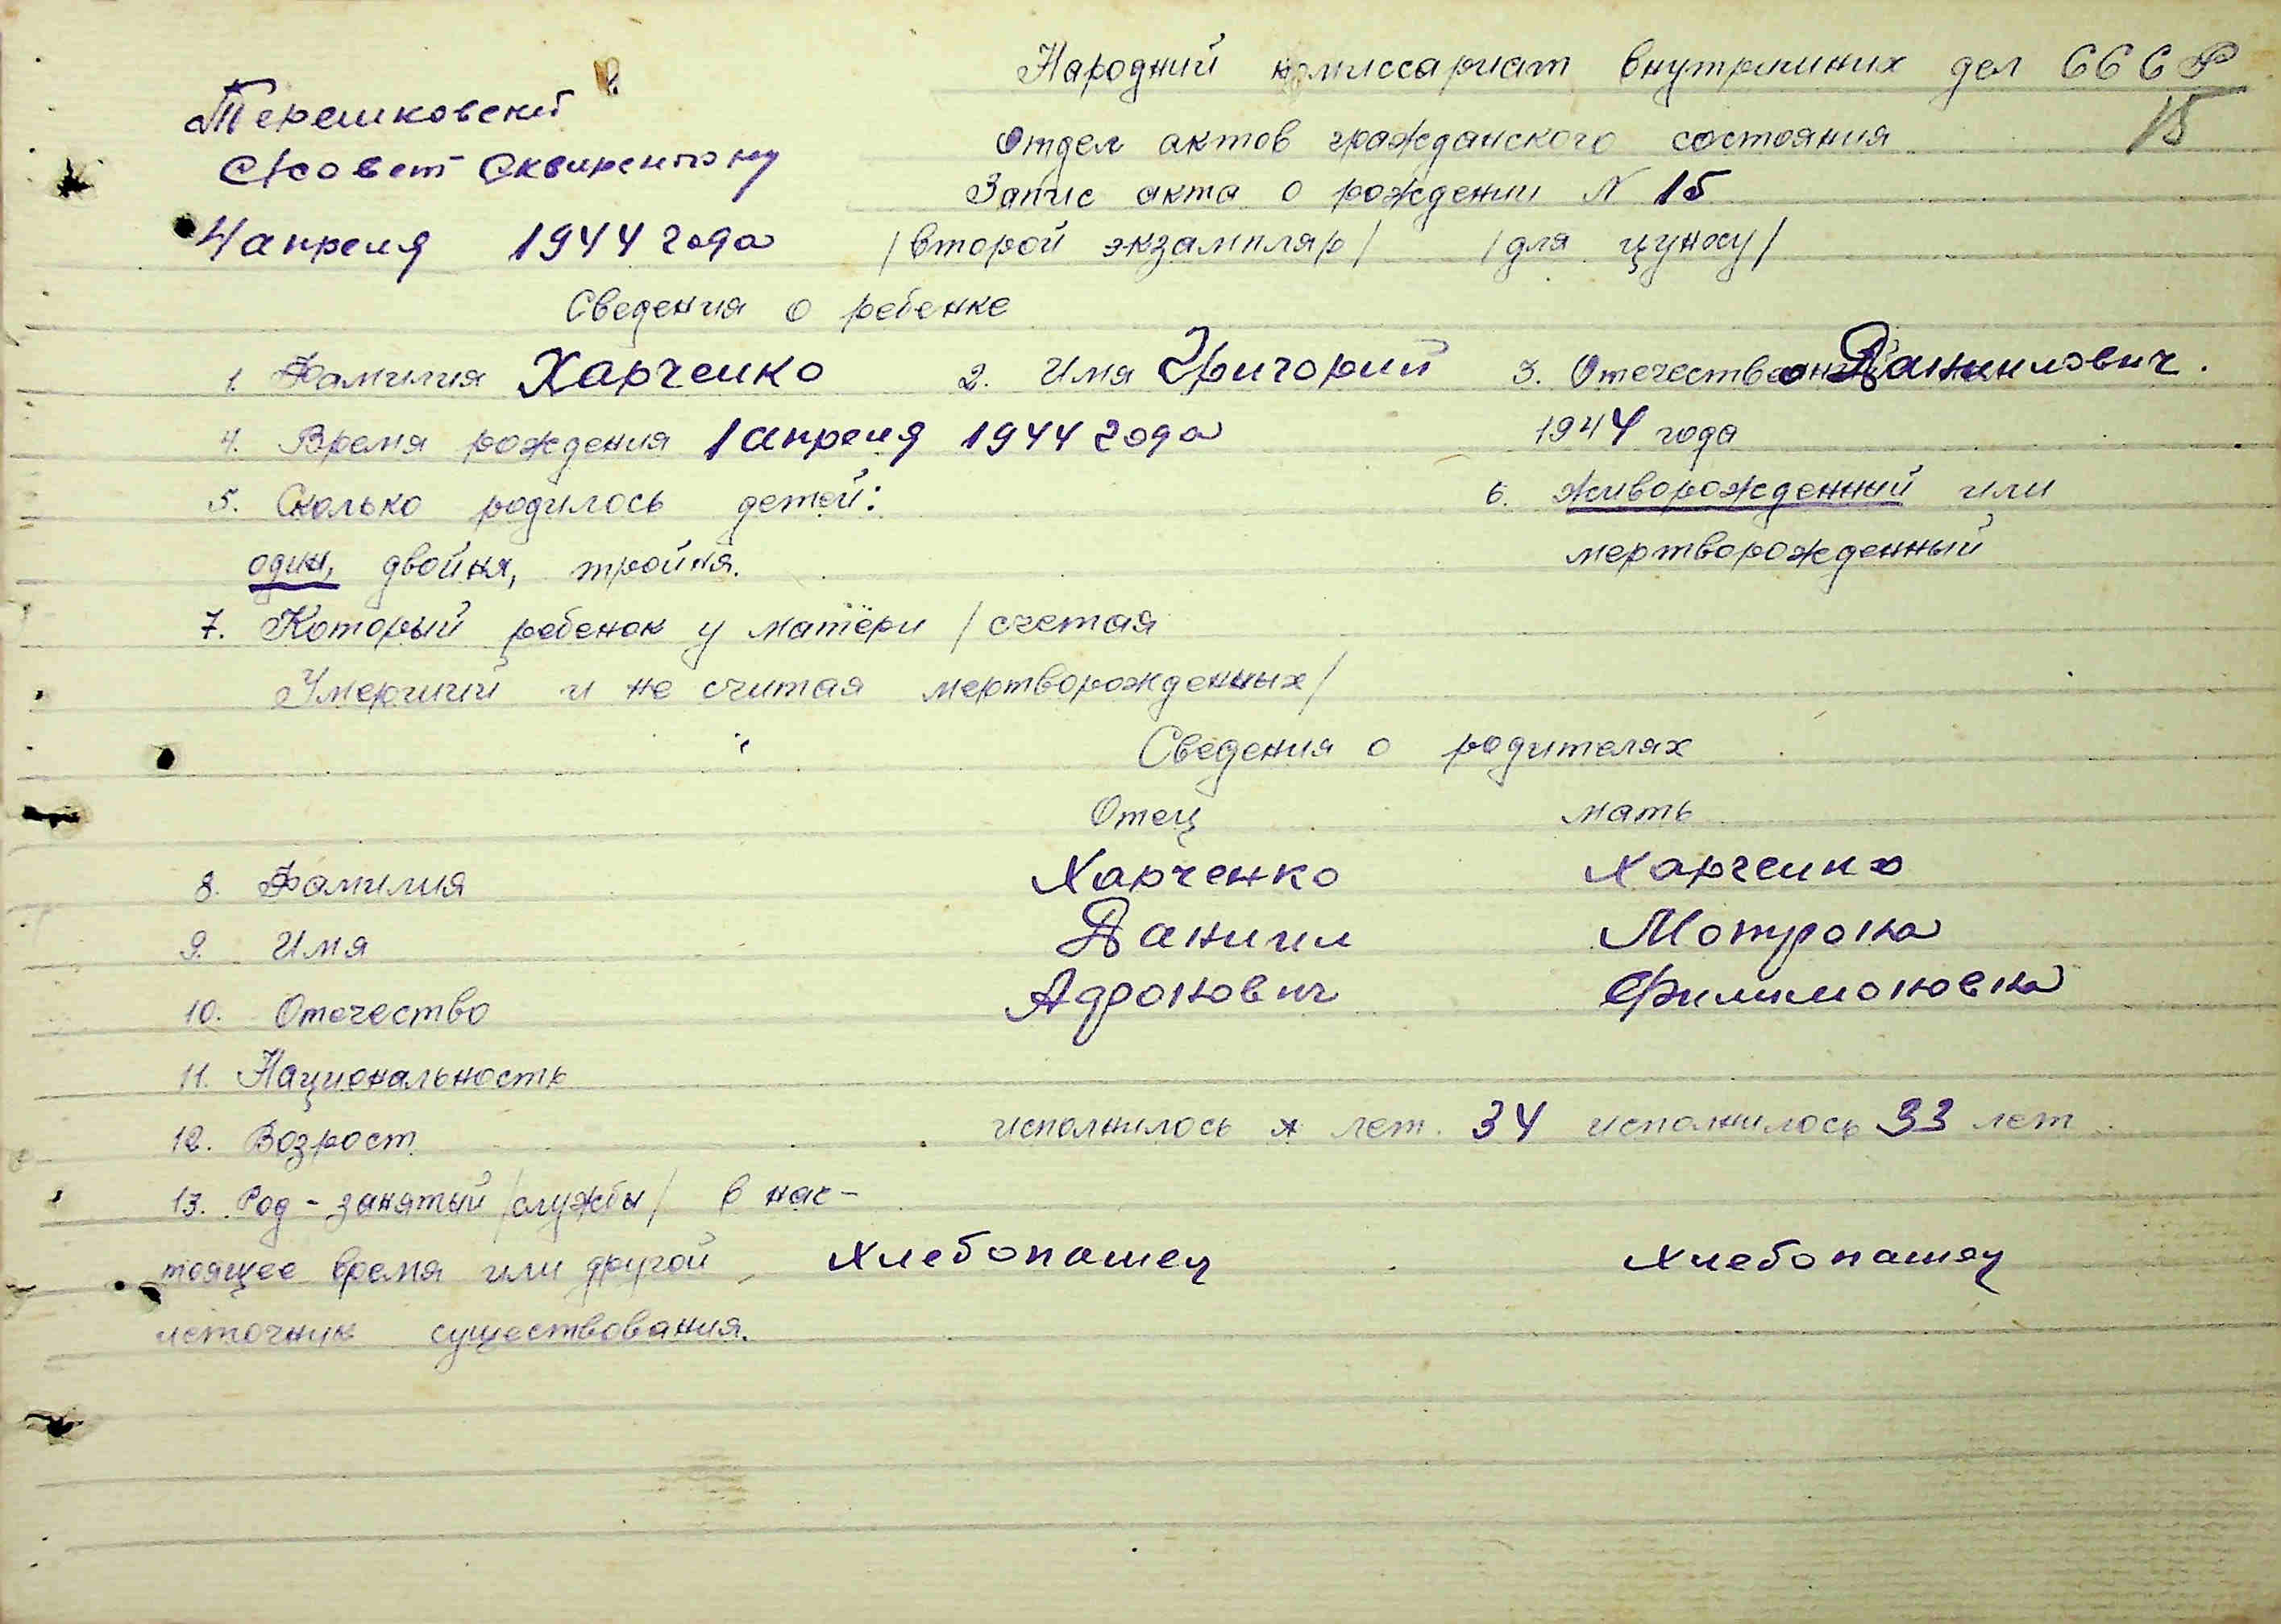 Народний комиссариат внутриних дел СССР
15
Терешковский
с/совет Сквирского
Отдел актов гражданского состояния
Запис акта о рождении N 15
4 апреля 1944 года /второй экзампляр/ /для цунху/
Сведения о ребенке
1. Фамилия Харченко 2. Имя Григорий 3. Отечество Данилович.
4. Время рождения 1 апреля 1944 года 1944 года
5. Сколько родилось детей: 6. живорожденный или
один, двойня, тройня. мертворожденный
7. Который ребенок у матери /счетая
Умерший и не считая мертворожденных/
Сведения о родителях
Отец мать
8. Фамилия Харченко Харченко
9. Имя Даниил Мотрона
10. Отечество Адронович Филимоновна
11. Национальность
12. Возрост исполнилось лет. 34 исполнилось 33 лет
13. Род-занятый /службы/ в нас-
тоящее время или другой хлебопашец хлебопашец
источник существования.